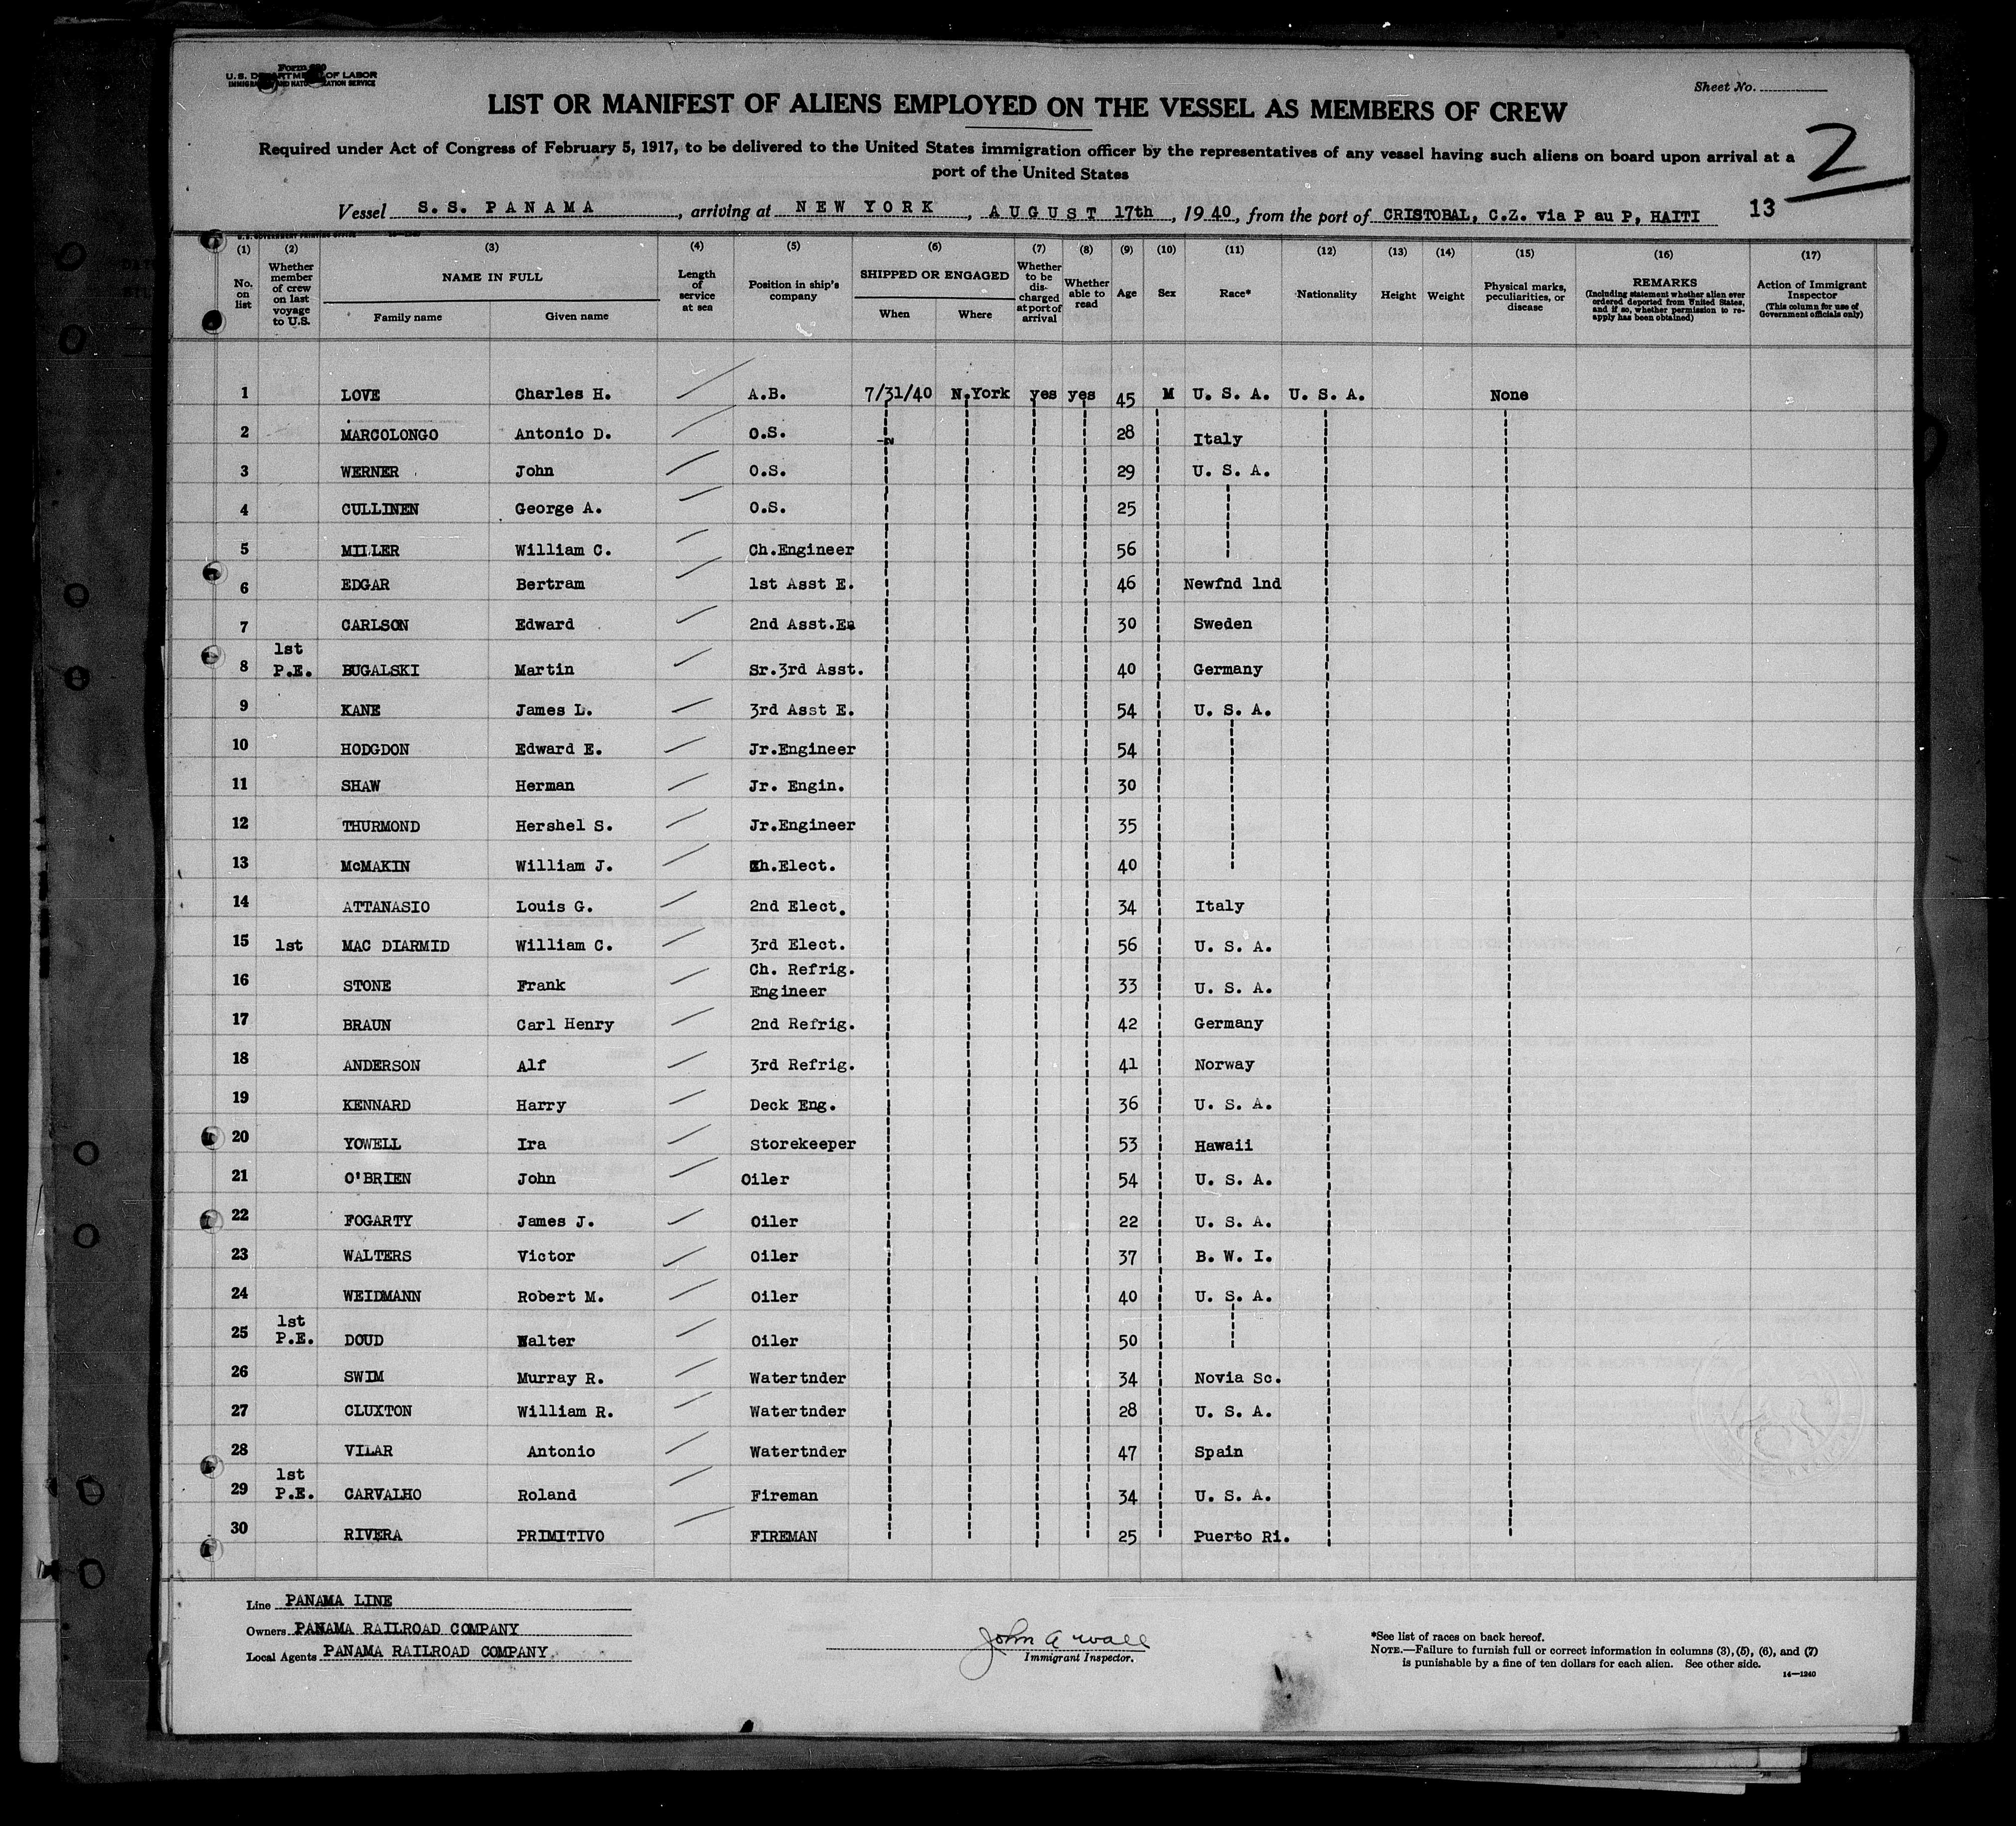 Form 680
U.S. DEPARTMENT OF LABOR
IMMIGRATION AND NATURALIZATION SERVICE
Sheet No.
LIST OR MANIFEST OF ALIENS EMPLOYED ON THE VESSEL AS MEMBERS OF CREW
2
Required under Act of Congress of February 5, 1917, to be delivered to the United States immigration officer by the representatives of any vessel having such aliens on board upon arrival at a
port of the United States
Vessel S.S. PANAMA, arriving at NEW YORK, AUGUST 17th, 1940, from the port of CRISTOBAL, C.Z. via P au P, HAITI 13
U.S. GOVERNMENT PRINTING OFFICE
(1) (2) (3) (4) (5) (6) (7) (8) (9) (10) (11) (12) (13) (14) (15) (16) (17)
No. on list
Whether member of crew on last voyage to U.S.
NAME IN FULL
Family name Given name
Length of service at sea
Position in ship's company
SHIPPED OR ENGAGED
When Where
Whether to be discharged at port of arrival
Whether able to read
Age
Sex
Race*
Nationality
Height
Weight
Physical marks, peculiarities, or disease
REMARKS
(Including statement whether alien ever ordered deported from United States, and if so, whether permission to reapply has been obtained)
Action of Immigrant Inspector
(This column for use of Government officials only)
1 LOVE Charles H. A.B. 7/31/40 N.York yes yes 45 M U. S. A. U. S. A. None
2 MARCOLONGO Antonio D. O.S. 28 Italy
3 WERNER John O.S. 29 U. S. A.
4 CULLINEN George A. O.S. 25
5 MILLER William C. Ch.Engineer 56
6 EDGAR Bertram 1st Asst E. 46 Newfnd lnd
7 CARLSON Edward 2nd Asst.En 30 Sweden
1st
8 P.E. BUGALSKI Martin Sr.3rd Asst. 40 Germany
9 KANE James L. 3rd Asst E. 54 U. S. A.
10 HODGDON Edward E. Jr.Engineer 54
11 SHAW Herman Jr. Engin. 30
12 THURMOND Hershel S. Jr.Engineer 35
13 McMAKIN William J. Ch.Elect. 40
14 ATTANASIO Louis G. 2nd Elect. 34 Italy
15 1st MAC DIARMID William C. 3rd Elect. 56 U. S. A.
Ch. Refrig.
16 STONE Frank Engineer 33 U. S. A.
17 BRAUN Carl Henry 2nd Refrig. 42 Germany
18 ANDERSON Alf 3rd Refrig. 41 Norway
19 KENNARD Harry Deck Eng. 36 U. S. A.
20 YOWELL Ira Storekeeper 53 Hawaii
21 O'BRIEN John Oiler 54 U. S. A.
22 FOGARTY James J. Oiler 22 U. S. A.
23 WALTERS Victor Oiler 37 B. W. I.
24 WEIDMANN Robert M. Oiler 40 U. S. A.
1st
25 P.E. DOUD Walter Oiler 50
26 SWIM Murray R. Watertnder 34 Novia Sc.
27 CLUXTON William R. Watertnder 28 U. S. A.
28 VILAR Antonio Watertnder 47 Spain
1st
29 P.E. CARVALHO Roland Fireman 34 U. S. A.
30 RIVERA PRIMITIVO FIREMAN 25 Puerto Ri.
Line PANAMA LINE
Owners PANAMA RAILROAD COMPANY
Local Agents PANAMA RAILROAD COMPANY
John A Wall
Immigrant Inspector.
*See list of races on back hereof.
NOTE.—Failure to furnish full or correct information in columns (3), (5), (6), and (7)
is punishable by a fine of ten dollars for each alien. See other side.
14—1240